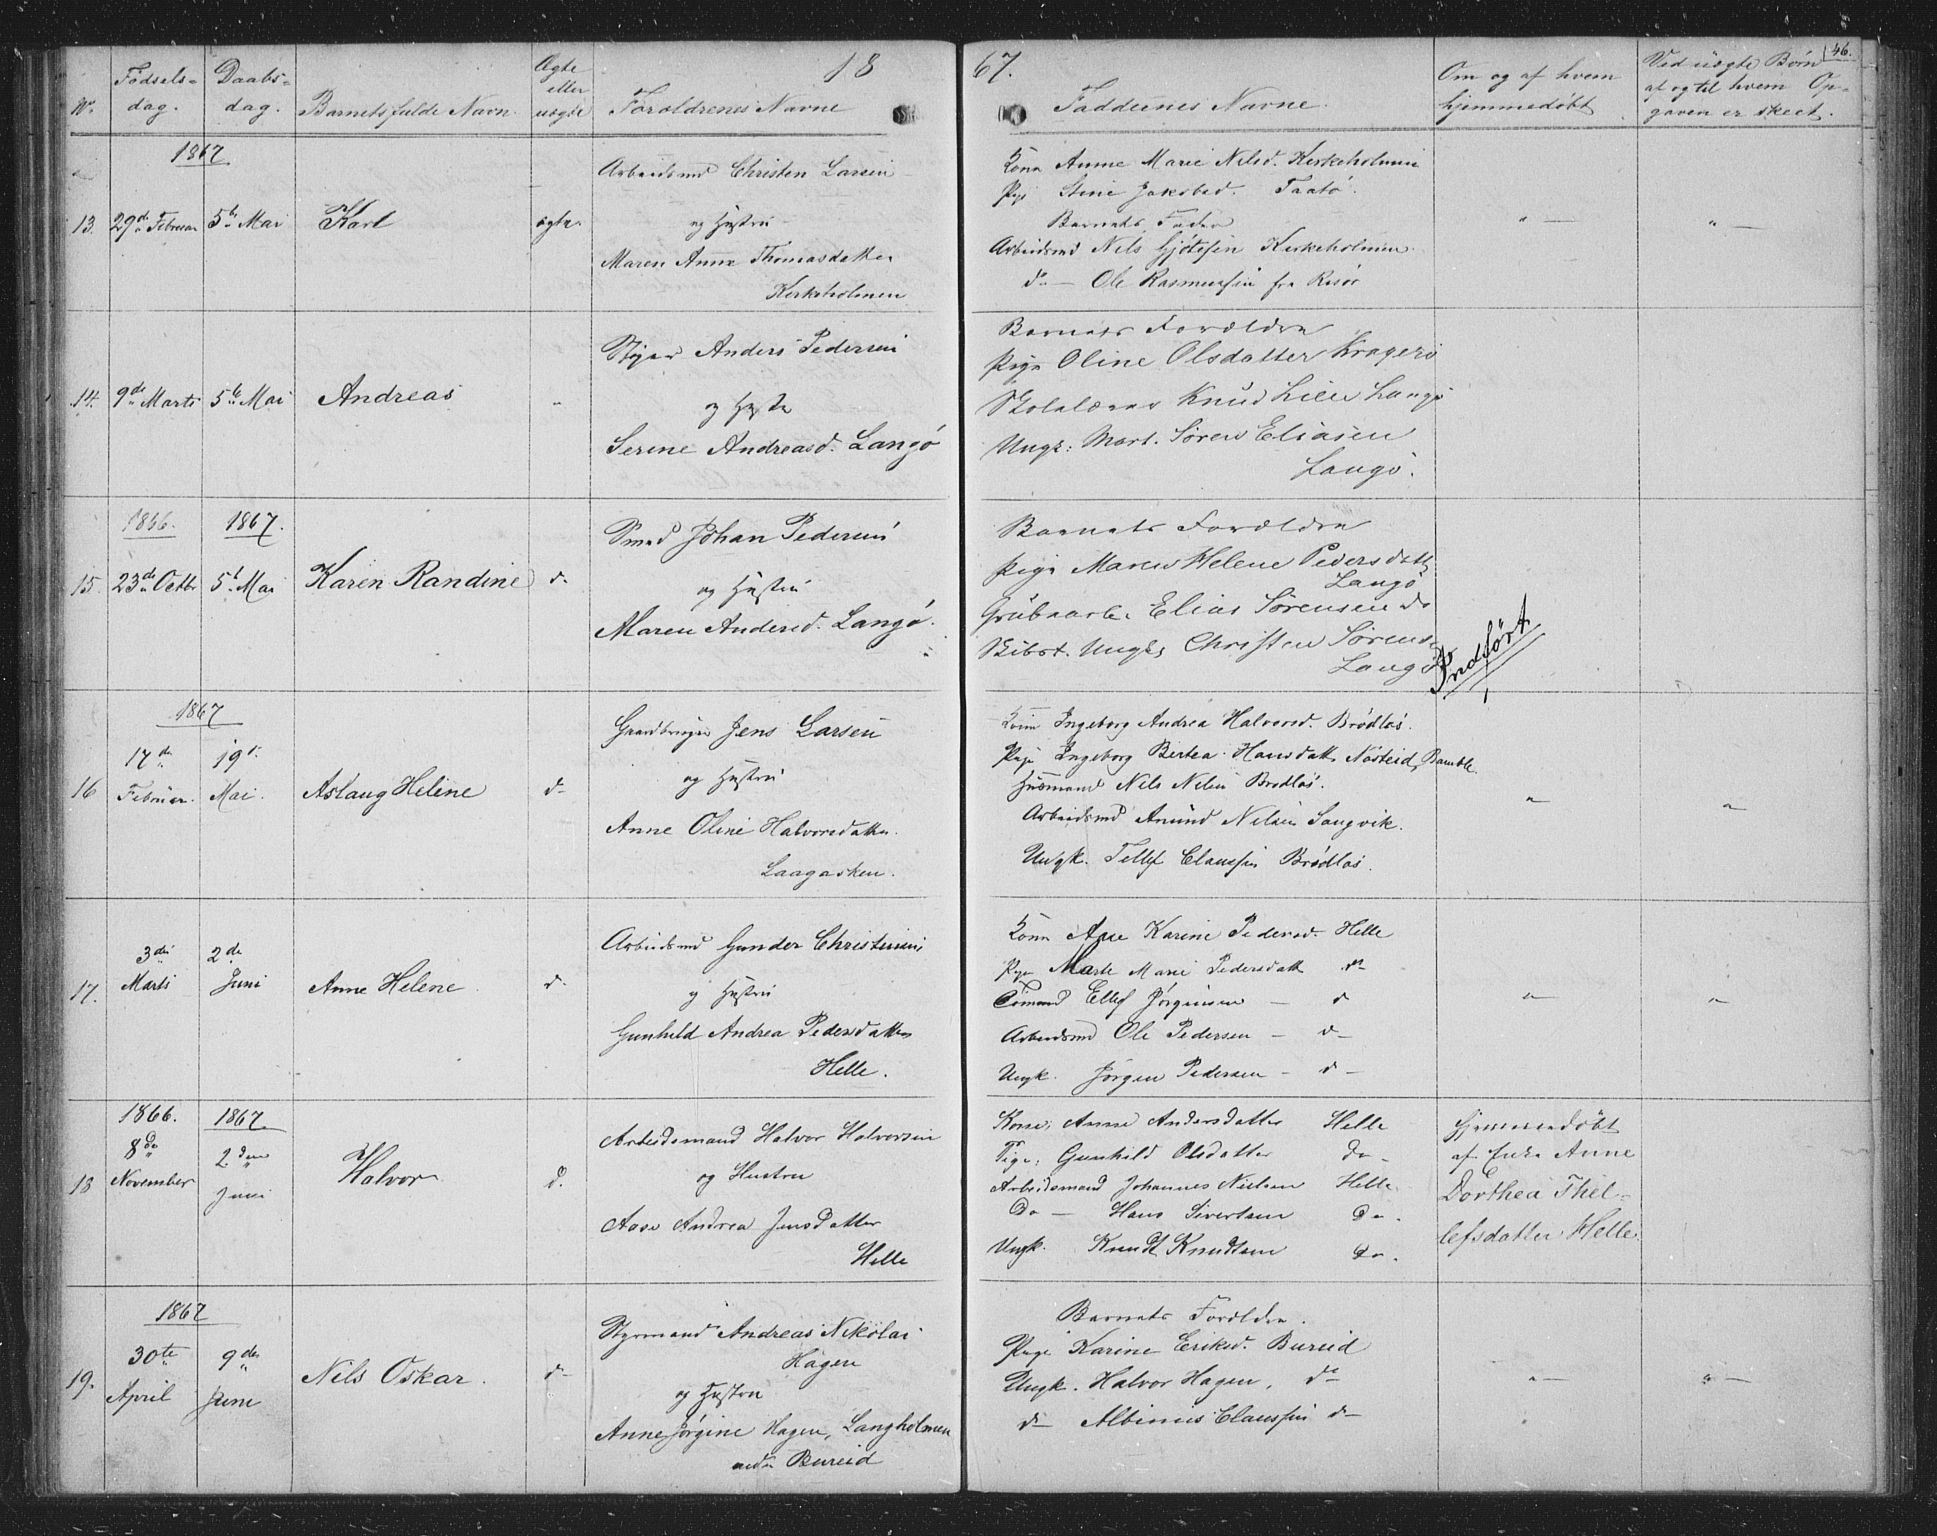 18 67. 46.
No. Fødsels-dag. Daabs-dag. Barnets fulde Navn. Ægte eller uægte Forældrenes Navne Faddernes Navne. Om og af hvem hjemmedøbt Ved uægte Børn af og til hvem Opgaven er skeet.
1867
13. 29de Februar 5te Mai Karl ægte.
Arbeidsmd Christen Larsen
og Hustru
Maren Anne Thomasdatter
Kirkeholmen
Kone Anne Marie Nilsd. Kirkeholmen
Pige Stine Jakobsd. Taatø.
Barnets Fader
Arbeidsmd Nils Kirkeholmen
do — Ole Rasmussen fra Risør
14. 9de Marts 5te Mai Andreas
Anders Pedersen
og Hustr
Serine Andreasd. Langø
Barnets Forældre
Pige Oline Olsdatter Kragerø
Skolelærer Knud Lien Langø
Ungk: Mart. Søren Eliasen
Langø.
1866. 1867.
15. 23de Octbr 5t Mai Karen Randine do
Smed Johan Pedersen
og Hustru
Maren Andersd. Langø.
Barnets Forældre
Pige Maren Helene Pedersdatt
Langø
Grubearb. Elias Sørensen do
Skibst. Ungk. Christen Sørens
Langø
Indført
1867
16 17de Februar. 19de Mai. Aslaug Helene do
Gaardbruger Jens Larsen
og Hustru
Anne Oline Halvorsdatter.
Laagasken.
Kone Ingeborg Andrea Halvorsd. Brødløs.
Pige Ingeborg Bertea Hansdatt. Bamble.
Husmand Nils Nilsen Brødløs.
Arbeidsmd Amund Nilsen Sangvik.
Ungk. Tellef Claussen Brødløs.
17. 3die Marts 2de Juni Anne Helene do
Arbeidsmd Gunder Christensen
og Hustru
Gunhild Andrea Pedersdatter
Helle.
Kone Ane Karine Pedersd. Helle
Pige Marte Marie Pedersdatt do
Sømand Ellef Jørgensen — do
Arbeidsmd Ole Pedersen — do
Ungk. Jørgen Pedersen — do
1866. 1867.
18 8de November 2den Juni Halvor d.
Arbeidsmand Halvor Halvorsen
og Hustru
Aase Andrea Jensdatter
Helle
Kone: Anne Andersdatter Helle
Pige: Gunhild Olsdatter do
Arbeidsmand Johannes Nielsen Helle
do — Hans Sivertsen do
Ungk. Knudt Knudtsen do
Hjemmedøbt
af Enke Anne
Dorthea Thel-
lefsdatter Helle.
1867
19. 30te April 9de Juni Nils Oskar. do
Styrmand Andreas Nikolai
Hagen
og Hustru
Anne Jørgine Hagen, Langholmen
under Bureid
Barnets Forældre.
Pige Karine Eriksd. Bureid
Ungk. Halvor Hagen, do
do Albinius Claussen do